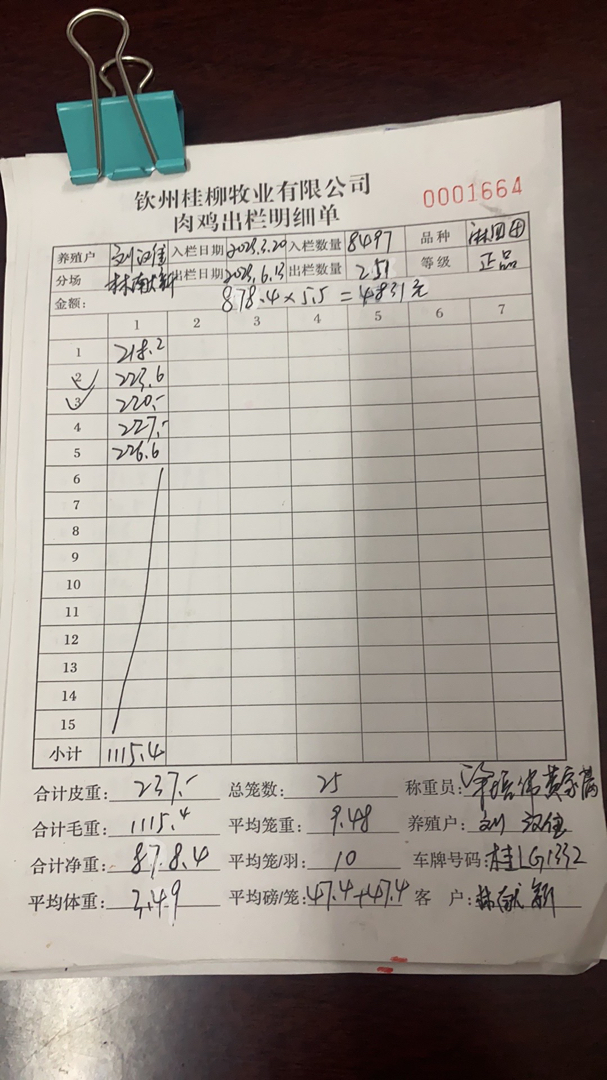 钦州桂柳牧业有限公司
0001664
肉鸡出栏明细单
养殖户 刘汉佳 入栏日期 2023.3.20 入栏数量 8497 品种 麻四回
分场 出栏日期 2023.6.13 出栏数量 251 等级 正品
金额: 878.4×5.5=4831元
1 2 3 4 5 6 7
1 218.2
2 223.6
3 220.-
4 227.-
5 226.6
6
7
8
9
10
11
12
13
14
15
小计 1115.4
合计皮重: 237.- 总笼数: 25 称重员:
合计毛重: 1115.4 平均笼重: 9.48 养殖户: 刘汉佳
合计净重: 878.4 平均笼/羽: 10 车牌号码: 桂LG1332
平均体重: 3.49 平均磅/笼: 47.4+47.4 客 户: